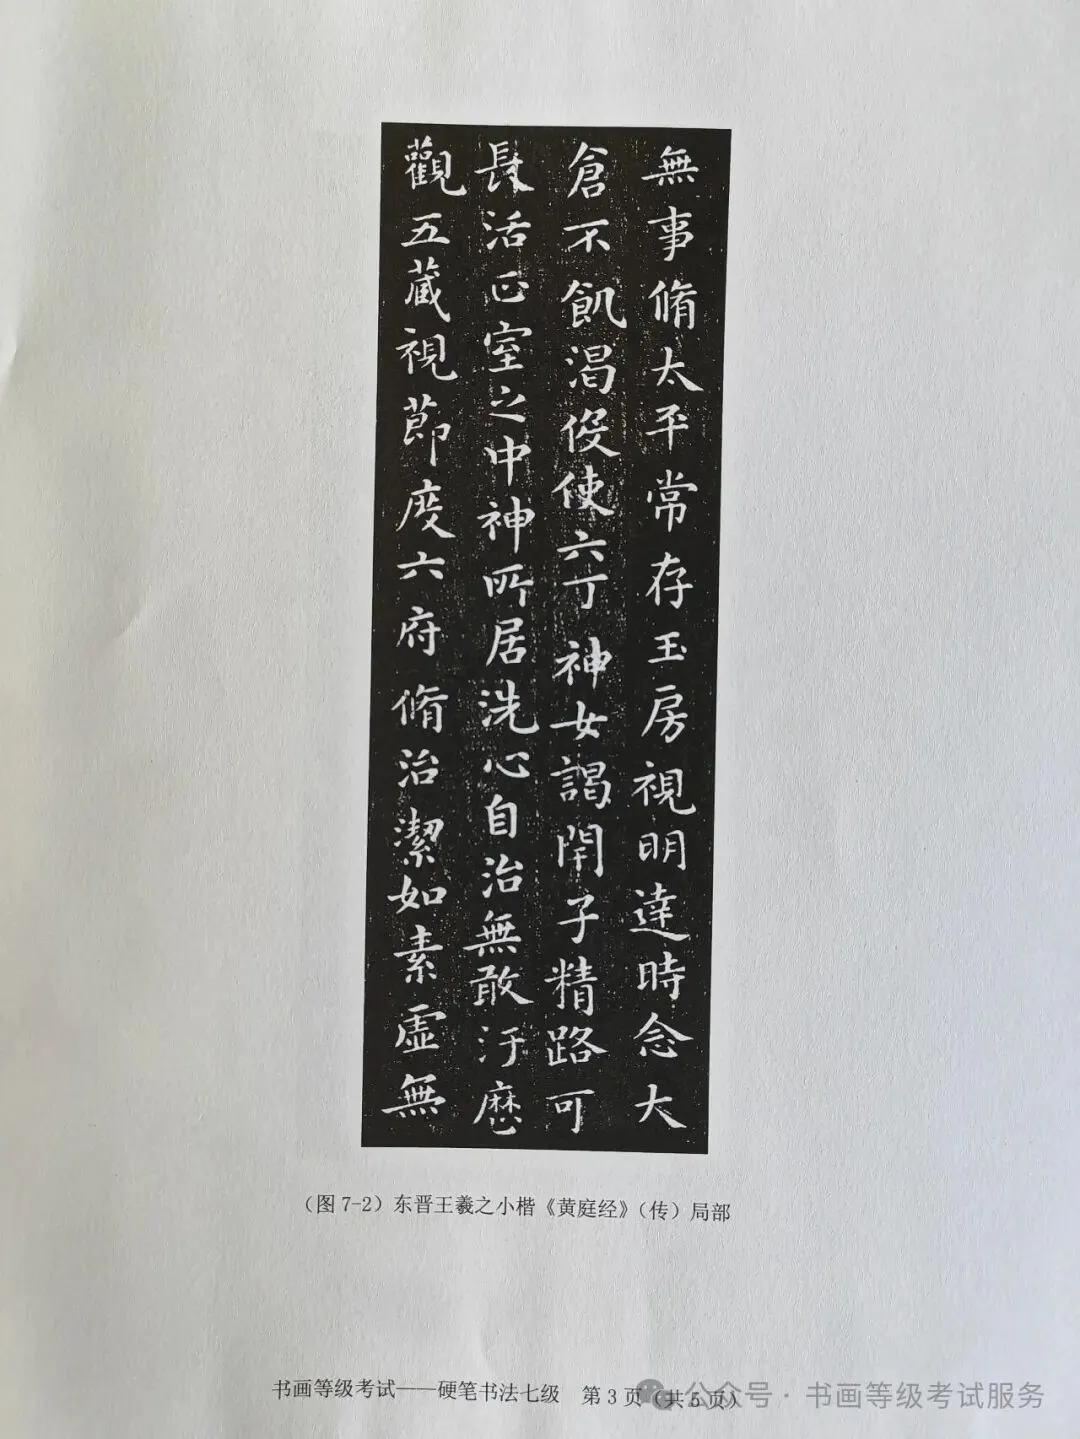 無事脩太平常存玉房視明達時念大
倉不飢渴役使六丁神女謁閇子精路可
長活正室之中神所居洗心自治無敢汙歷
觀五藏視節度六府脩治潔如素虛無
（图 7-2）东晋王羲之小楷《黄庭经》（传）局部
书画等级考试——硬笔书法七级 第 3 页（共 5 页）
公众号·书画等级考试服务